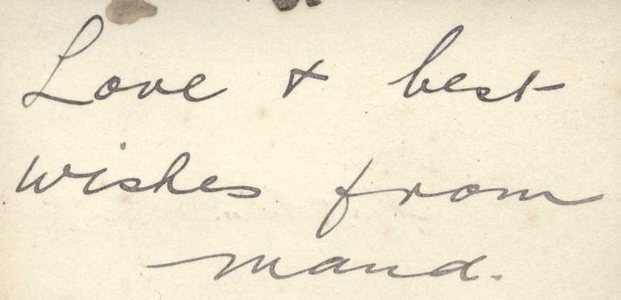 Love + best
wishes from
Maud.